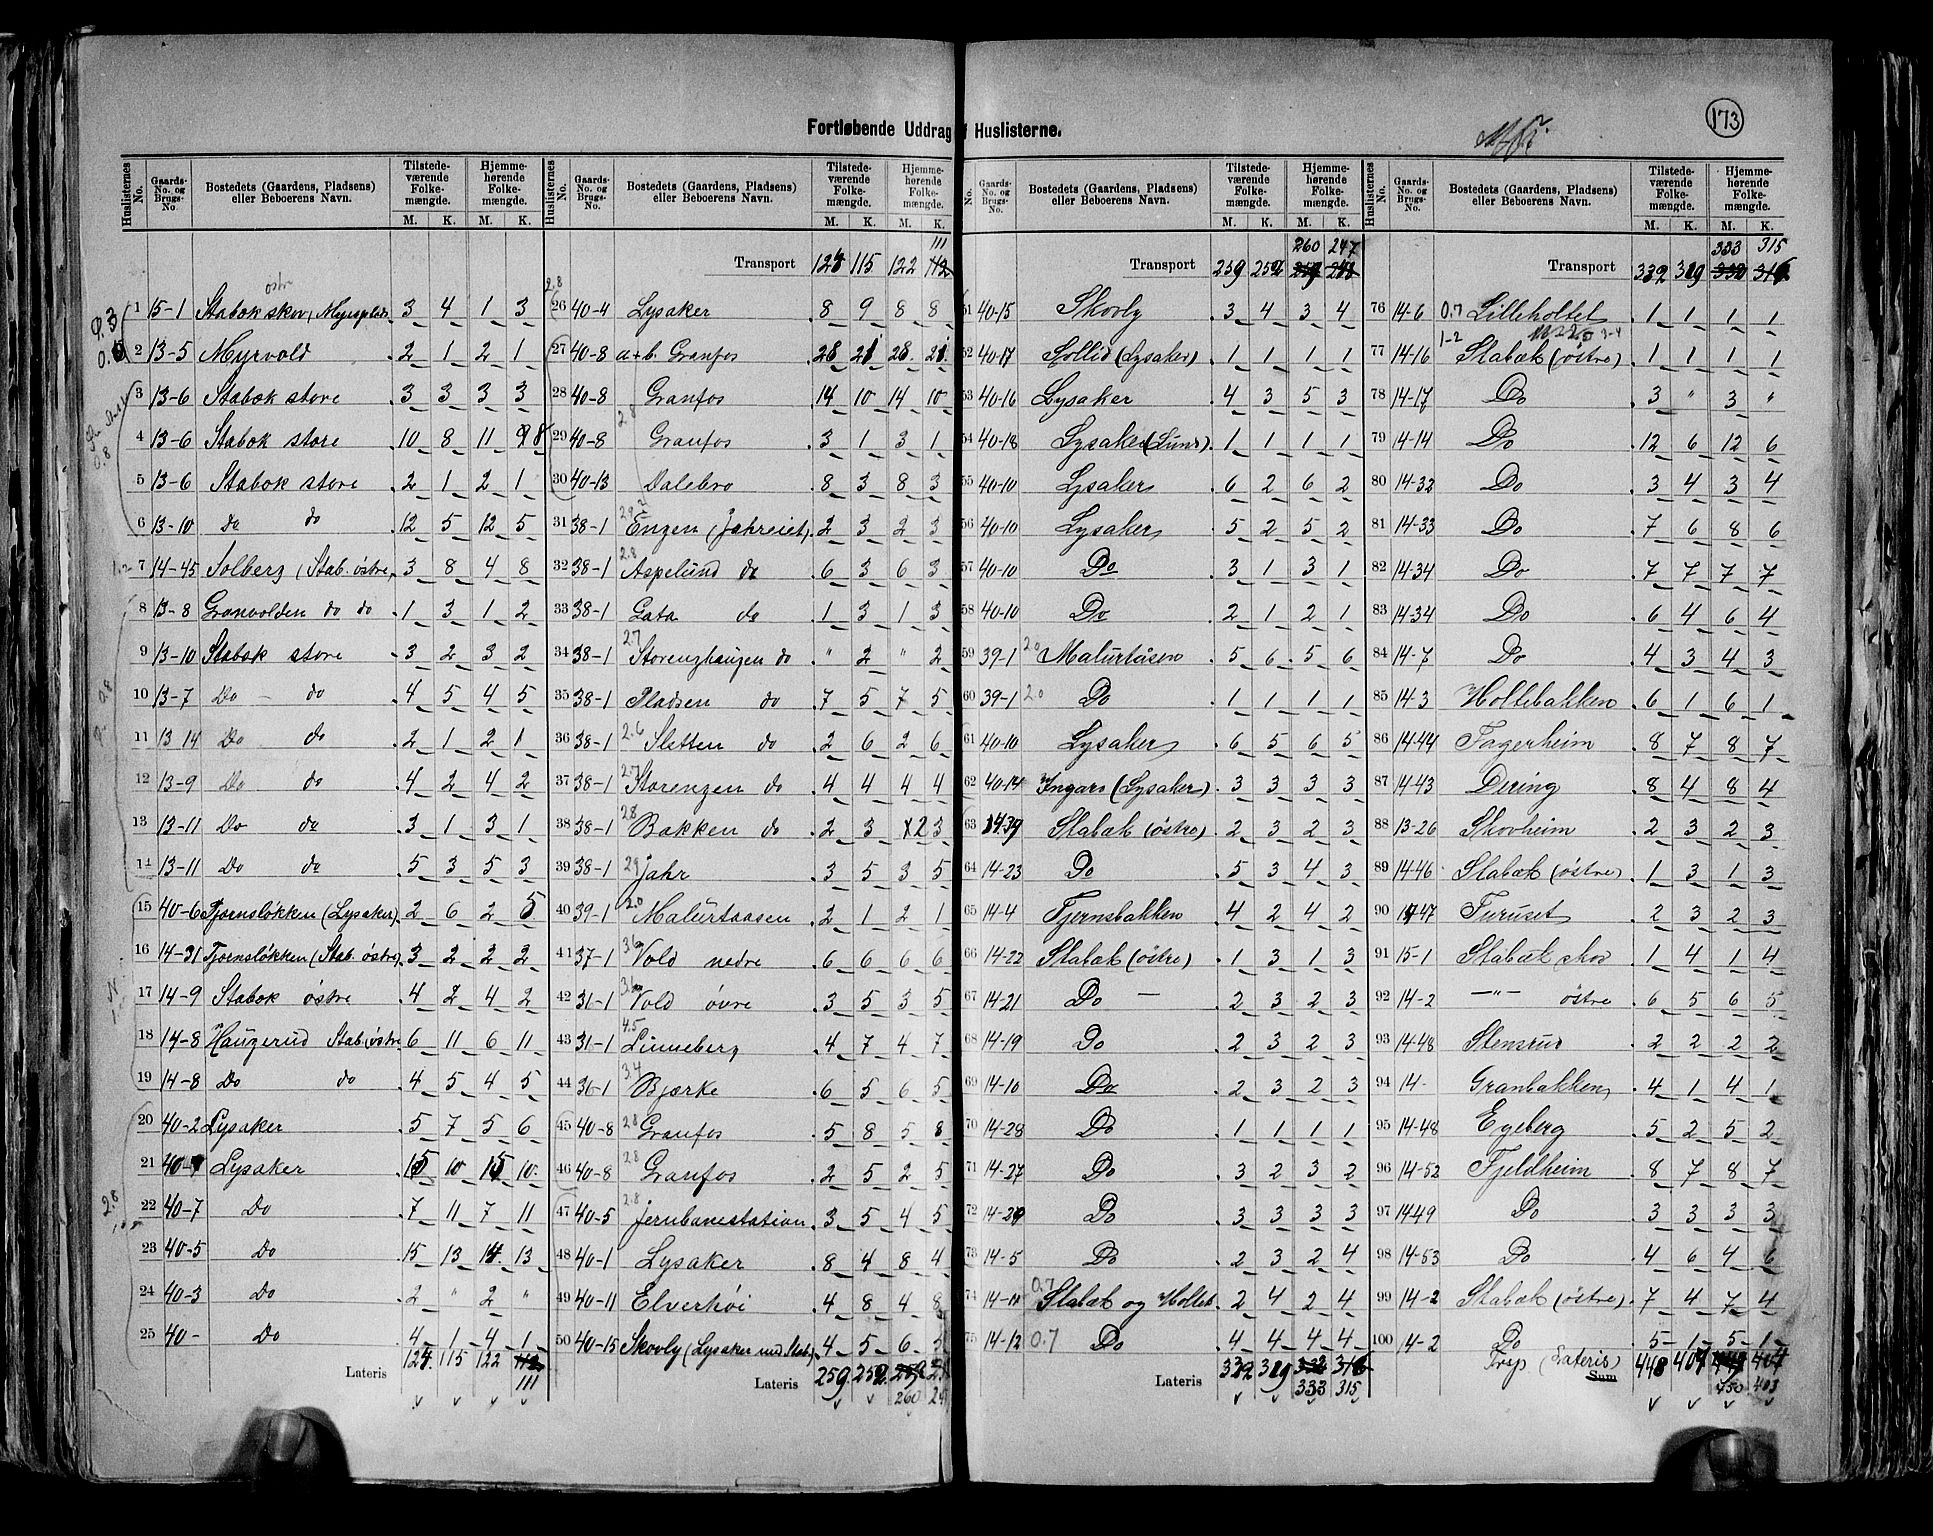 173
Fortløbende Uddrag Huslisterne.
Huslisternes No. | Gaards-No. og Brugs-No. | Bostedets (Gaardens, Pladsens) eller Beboerens Navn. | Tilstedeværende Folkemængde. M. K. | Hjemmehørende Folkemængde. M. K.
østre
1 15-1 Stabæk skov, 3 4 1 3
2 13-5 Myrvold 2 1 2 1
3 13-6 Stabæk store 3 3 3 3
4 13-6 Stabæk store 10 8 11 8
5 13-6 Stabæk store 2 1 2 1
6 13-10 do do 12 5 12 5
7 14-45 Solberg (Stab. østre) 3 8 4 8
8 13-8 Granvolden do do 1 3 1 2
9 13-10 Stabæk store 3 2 3 2
10 13-7 Do - do 4 5 4 5
11 13 14 Do do 2 1 2 1
12 13-9 Do do 4 2 4 2
13 13-11 Do do 3 1 3 1
14 13-11 Do do 5 3 5 3
15 40-6 Tjernsløkken (Lysaker) 2 6 2 5
16 14-31 Tjernsløkken (Stab. østre) 3 2 2 2
17 14-9 Stabæk østre 4 2 4 2
18 14-8 Haugerud Stab. østre 6 11 6 11
19 14-8 Do do 4 5 4 5
20 40-2 Lysaker 5 7 5 6
21 Lysaker 15 10 15 10
22 40-7 Do 7 11 7 11
23 40-5 Do 15 13 14 13
24 40-3 Do 2 " 2 "
25 40- Do 4 1 4 1
Lateris 124 115 122 112
111
111
Transport 124 115 122 112
26 40-4 Lysaker 8 9 8 8
27 40-8 a+b. Granfos 28 21 28 21
28 40-8 Granfos 14 10 14 10
29 40-8 Granfos 3 1 3 1
30 40-13 Dalebro 8 3 8 3
31 38-1 Engen (Jahreiet) 2 3 2 3
32 38-1 Aspelund do 6 3 6 3
33 38-1 Gata do 1 3 1 3
34 38-1 Storenghaugen do " 2 " 2
35 38-1 Pladsen do 7 5 7 5
36 38-1 Sletten do 2 6 2 6
37 38-1 Storengen do 4 4 4 4
38 38-1 Bakken do 2 3 2 3
39 38-1 Jahr 3 5 3 5
40 39-1 Malurtaasen 2 1 2 1
41 37-1 Vold nedre 6 6 6 6
42 31-1 Vold øvre 3 5 3 5
43 31-1 Linneberg 4 7 4 7
44 36-1 Bjerke 6 5 6 5
45 40-8 Granfos 5 8 5 8
46 40-8 Granfos 2 5 2 5
47 40-5 Jernbanestation 3 5 4 5
48 40-1 Lysaker 8 4 8 4
49 40-11 Elverhøi 4 8 4 8
50 40-15 Skovly (Lysaker med Stab.) 4 5 6 5
Lateris 259 252 259
260
260 247
Transport 259 252 259 248
51 40-15 Skovly 3 4 3 4
52 40-17 Sollid (Lysaker) 1 1 1 1
53 40-16 Lysaker 4 3 5 3
54 40-18 Lysaker (Lund) 1 1 1 1
55 40-10 Lysaker 6 2 6 2
56 40-10 Lysaker 5 2 5 2
57 40-10 Do 3 1 3 1
58 40-10 Do 2 1 2 1
59 39-1 Malurtåsen 5 6 5 6
60 39-1 Do 1 1 1 1
61 40-10 Lysaker 6 5 6 5
62 40-14 Yngars (Lysaker) 3 3 3 3
63 14-39 Stabæk (østre) 2 3 2 3
64 14-23 Do 5 3 4 3
65 14-4 Tjernsbakken 4 2 4 2
66 14-22 Stabæk (østre) 1 3 1 3
67 14-21 Do - 2 3 2 3
68 14-19 Do 2 3 2 3
69 14-10 Do 2 3 2 3
70 14-28 Do 1 1 1 1
71 14-27 Do 3 2 3 2
72 14-29 Do 3 3 3 3
73 14-5 Do 2 3 2 4
74 14-11 Stabæk og Holtet 2 4 2 4
75 14-12 Do 4 4 4 4
Lateris 332 319 332 316
333 315
333 315
Transport 332 319 332 316
76 14-6 Lilleholtet 1 1 1 1
77 14-16 Stabæk (østre) 1 1 1 1
78 14-17 Do 3 " 3 "
79 14-14 Do 12 6 12 6
80 14-32 Do 3 4 3 4
81 14-33 Do 7 6 8 6
82 14-34 Do 7 7 7 7
83 14-34 Do 6 4 6 4
84 14-7 Do 4 3 4 3
85 14-3 Holtebakken 6 1 6 1
86 14-44 Fagerheim 8 7 8 7
87 14-43 Dering 8 4 8 4
88 13-26 Skovheim 2 3 2 3
89 14-46 Stabæk (østre) 1 3 1 3
90 14-47 Furuset 2 3 2 3
91 15-1 Stabæk skov 1 4 1 4
92 14-2 -"- østre 6 5 6 5
93 14-48 Stensrud 2 2 2 2
94 14- Granbakken 4 1 4 1
95 14-48 Egeberg 5 2 5 2
96 14-52 Fjeldheim 8 7 8 7
97 14-49 Do 3 3 3 3
98 14-53 Do 4 6 4 6
99 14-2 Stabæk (østre) 7 4 7 4
100 14-2 Do 5 1 5 1
(Lateris) Sum 448 407 449 404
450 403